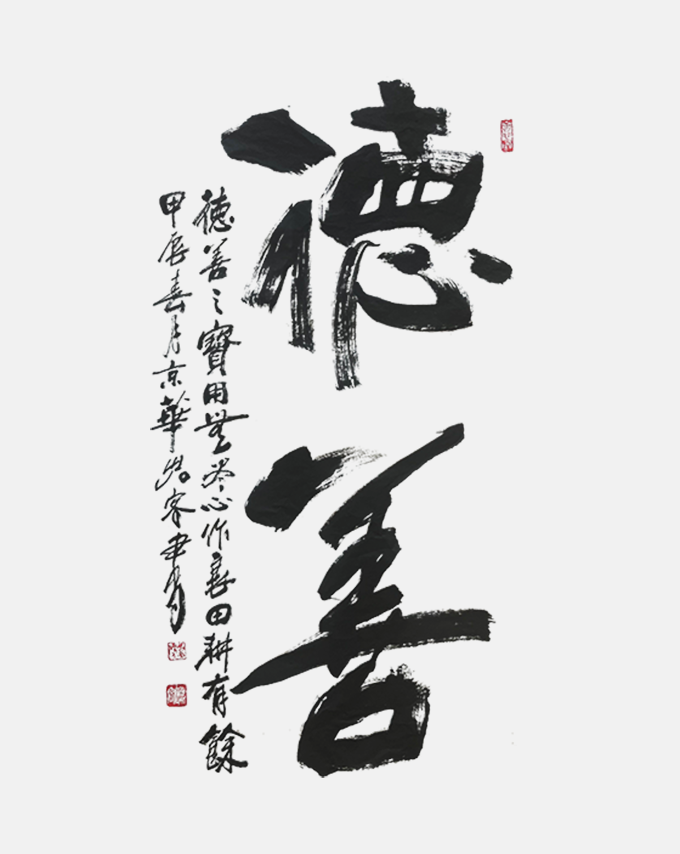 德善
德善之寶用無尽心作良田耕有餘
甲辰春月京華客